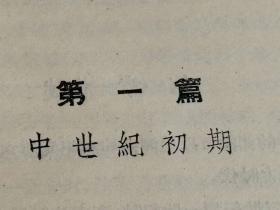 第一篇
中世紀初期